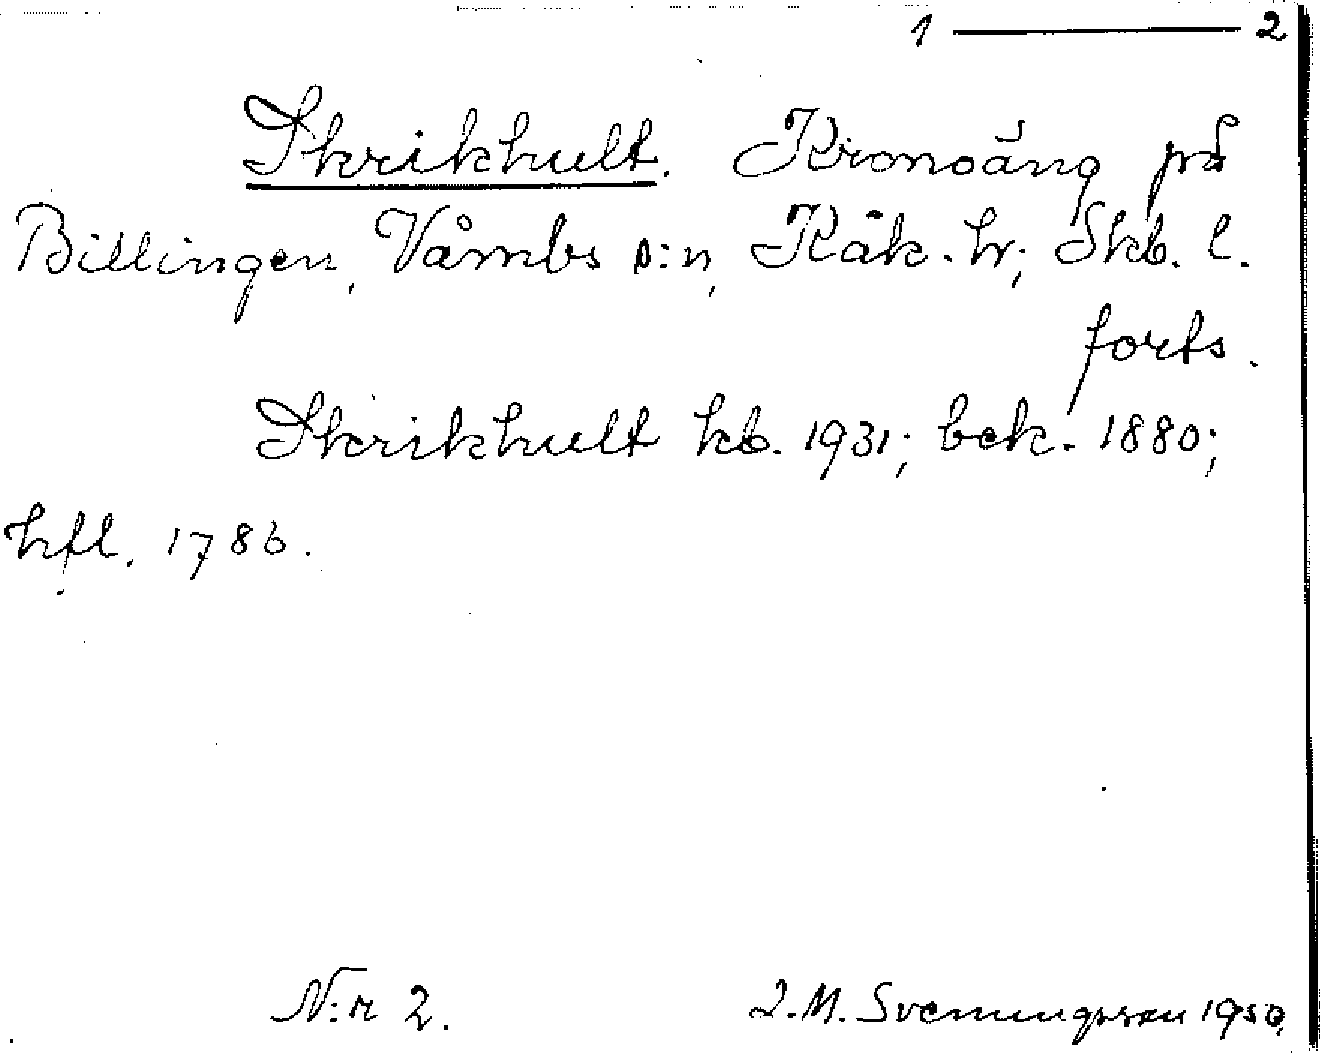 1 ——— 2
Skrikhult. Kronoäng på
Billingen, Våmbs s:n, Kåk. hr; Skb. l.
forts.
Skrikhult kb. 1931; bek. 1880;
hfl. 1786.
N:r 2. J.M. Svenungsson 1950